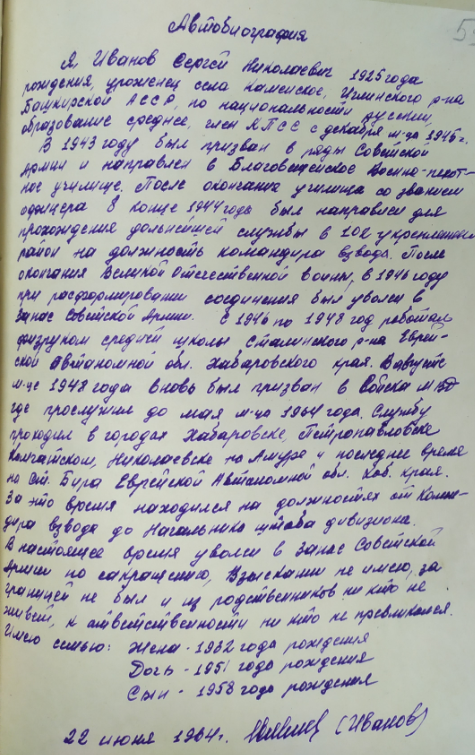 Автобиография
Я, Иванов Сергей Николаевич 1925 года
рождения, уроженец села Каменное, Иглинского р-на
Башкирской АССР, по национальности русский,
образование среднее, член КПСС с декабря м-ца 1946 г.
В 1943 году был призван в ряды Советской
Армии и направлен в Благовещенское Военно-пехот-
ное училище. После окончания училища со званием
офицера в конце 1944 года был направлен для
прохождения дальнейшей службы в 102 укрепленный
район на должность командира взвода. После
окончания Великой Отечественной войны, в 1946 году
при расформировании соединения был уволен в
запас Советской Армии. С 1946 по 1948 год работал
физруком средней школы Сталинского р-на Еврей-
ской Автаномной обл. Хабаровского края. В августе
м-це 1948 года вновь был призван в Войска
где прослужил до мая м-ца 1964 года. Службу
проходил в городах Хабаровске, Петропавловске
Камчатском, Николаевске на Амуре и последнее время
на ст. Бира Еврейской Автаномной обл. Хаб. края.
За это время находился на должностях от Коман-
дира взвода до Начальника штаба дивизиона.
В настоящее время уволен в запас Советской
Армии по сокращению, Взыскании не имею, за
границей не был и из родственников ни кто не
живет, к ответственности ни кто не превликался.
Имею семью: Жена - 1932 года рождения
Дочь - 1951 года рождения
Сын - 1958 года рождения
22 июня 1964 г. (Иванов)